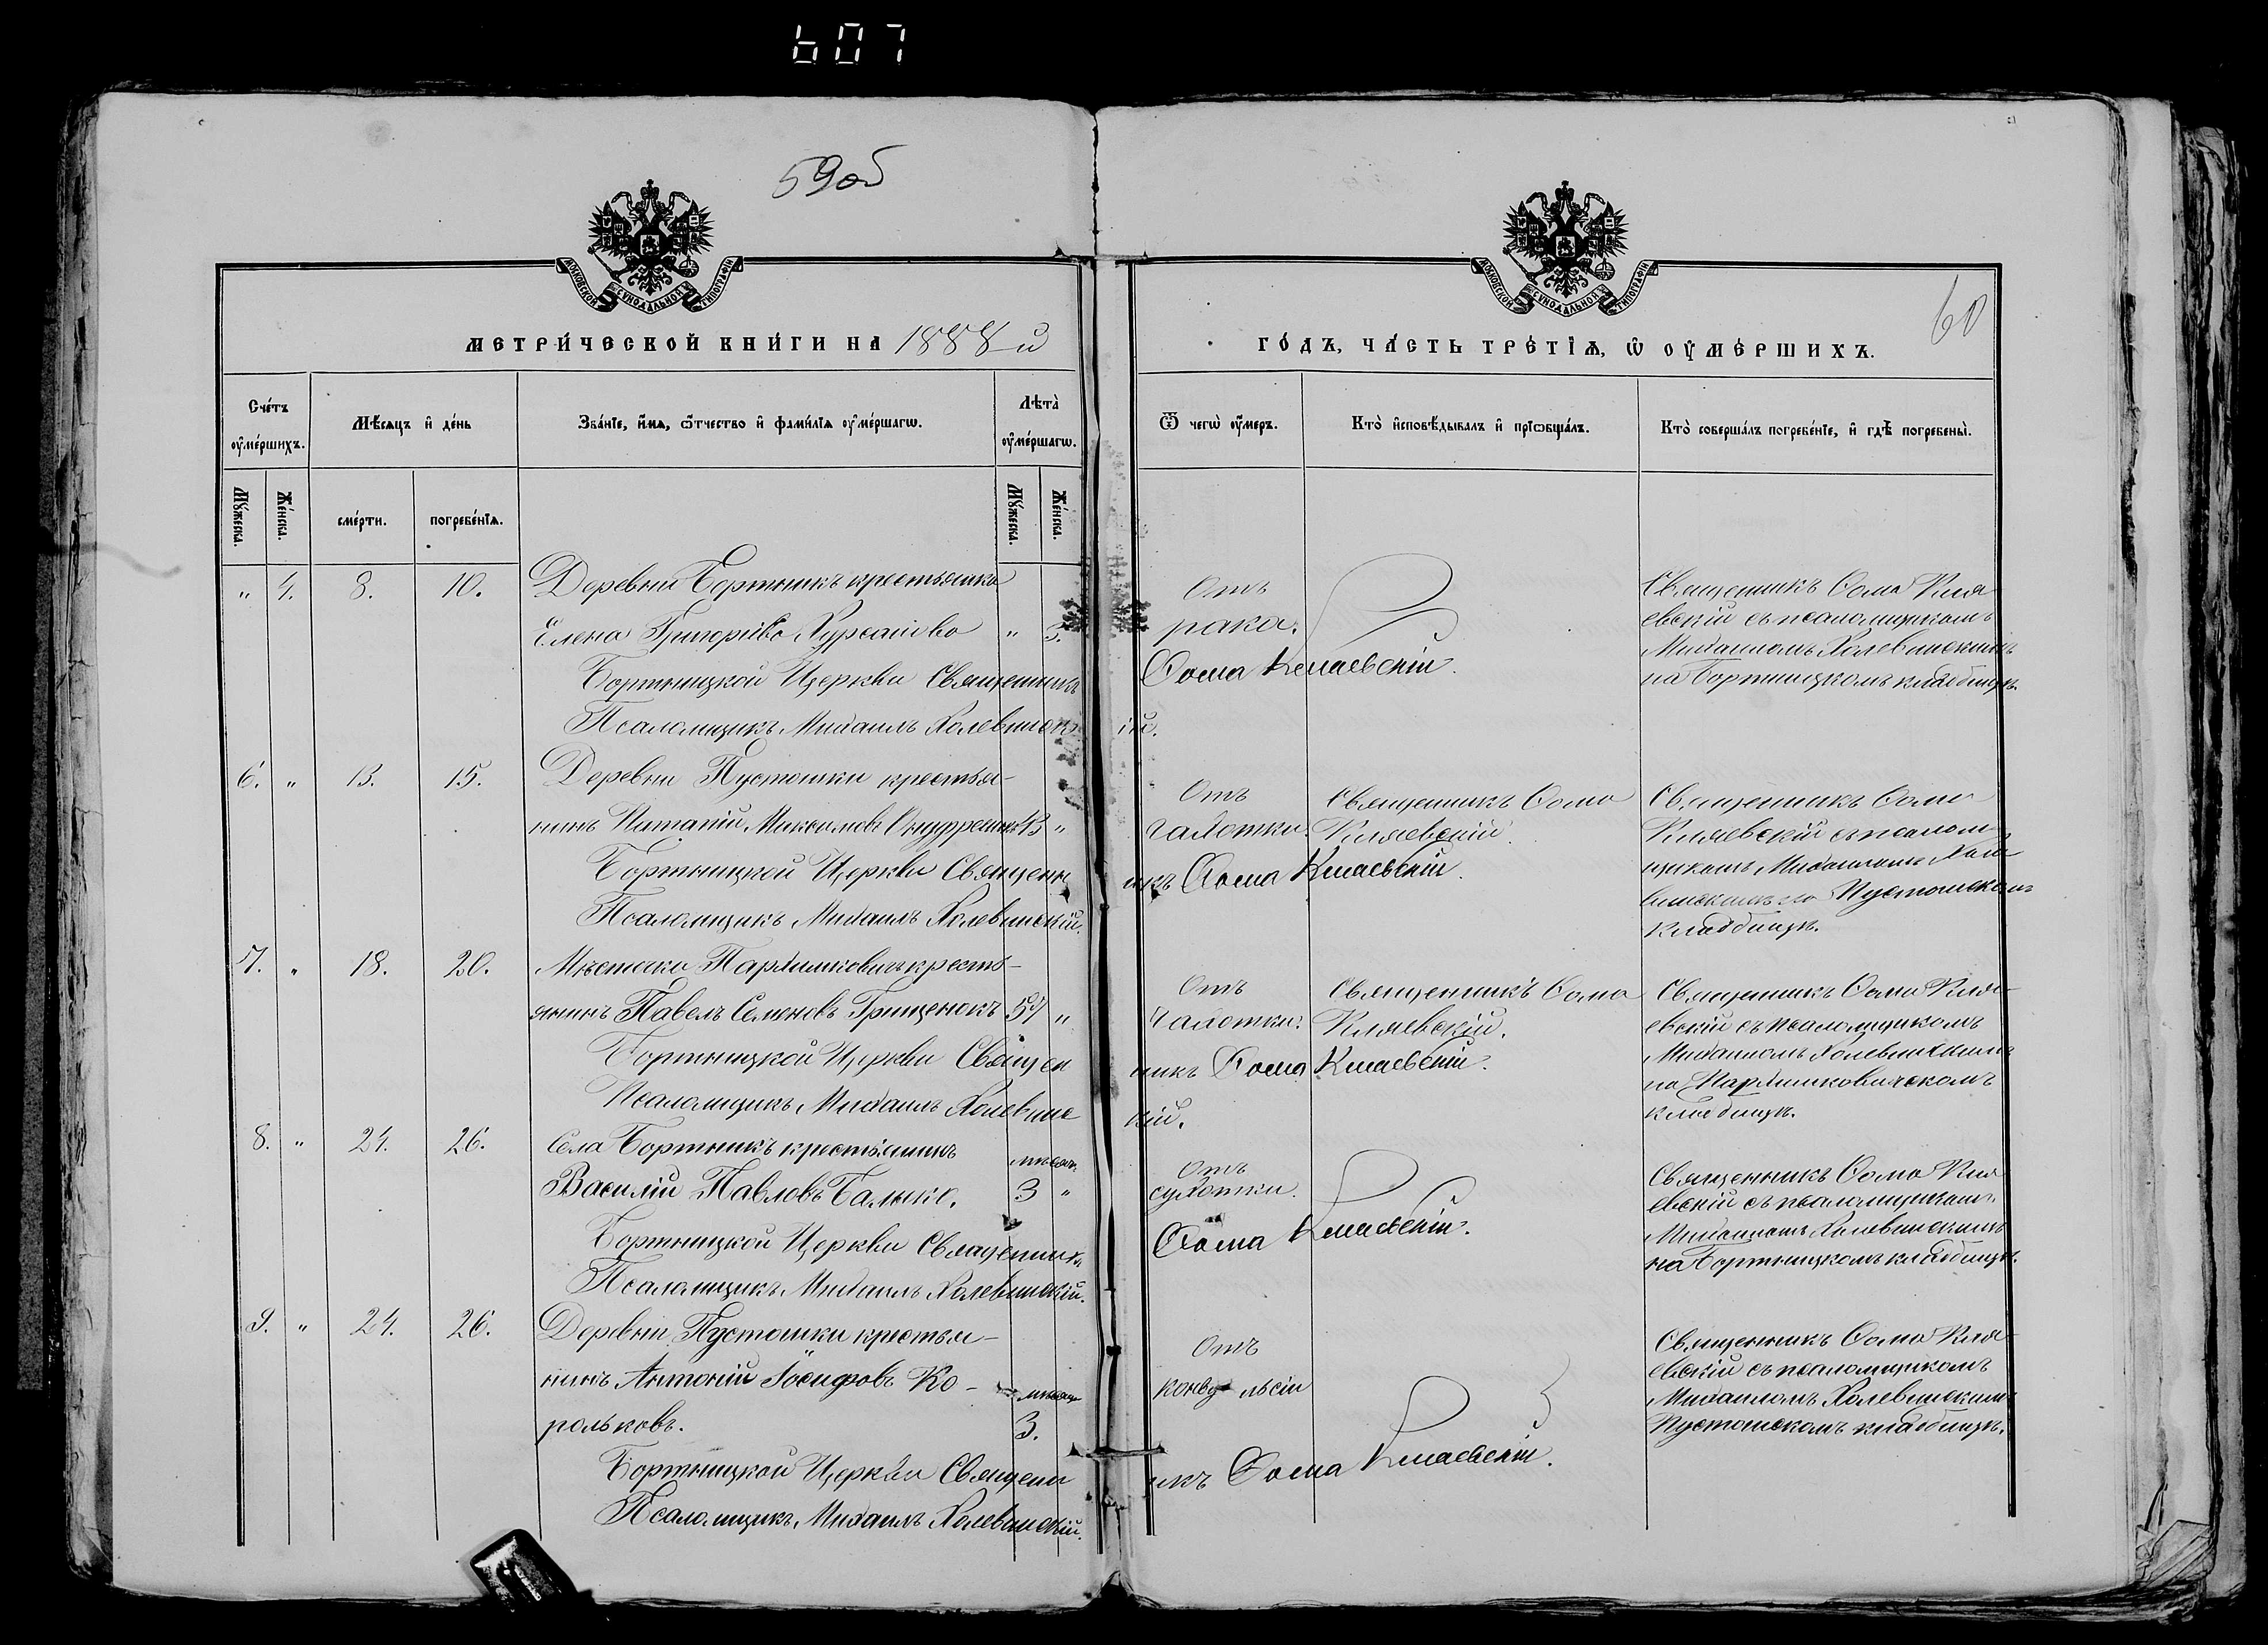 607
59об
МОСКОВСКОЙ СѴНОДАЛЬНОЙ ТИПОГРАФІИ
МЕТРИ́ЧЕСКОЙ КНИ́ГИ НА 1888 й
Сче́тъ оу҆ме́ршихъ.
Мѣ́сяцъ и҆ де́нь
Зва́нїе, и҆́мѧ, ѻ҆́тчество и҆ фами́лїѧ оу҆ме́ршагѡ.
Лѣта̀ оу҆ме́ршагѡ.
Мꙋ́жеска.
Же́нска.
сме́рти.
погребе́нїѧ.
Мꙋ́жеска.
Же́нска.
„ 4. 8. 10. Деревни Бортникъ крестьянка
Елена Григоріева „ 3.
Бортницкой Церкви Священникъ
Псаломщикъ Михаилъ Холевинск
6. „ 13. 15. Деревни Пустошки крестья-
нинъ Максимовъ „
Бортницкой Церкви Священн
Псаломщикъ Михаилъ Холевинскій.
7. „ 18. 20. Мѣстечка Парфимковичъ кресть-
янинъ Павелъ Семеновъ Грищенокъ 57 „
Бортницкой Церкви Священ
Псаломщикъ Михаилъ Холевинс
8. „ 24. 26. Села Бортникъ крестьянинъ мѣсяц.
Василій Павловъ 3 „
Бортницкой Церкви Священникъ
Псаломщикъ Михаилъ Холевинскій.
9. „ 24. 26. Деревни Пустошки крестья-
нинъ Антоній Іосифовъ Ко-
рольковъ. 3.
Бортницкой Церкви Священн
Псаломщикъ Михаилъ Холевинскій.
МОСКОВСКОЙ СѴНОДАЛЬНОЙ ТИПОГРАФІИ
60
ГО́ДЪ, ЧА́СТЬ ТРЕ́ТЇѦ, Ѡ҆ ОУ҆МЕ́РШИХЪ.
Ѿ чегѡ̀ оу҆́меръ.
Кто̀ и҆сповѣ́дывалъ и҆ прїѡбща́лъ.
Кто̀ соверша́лъ погребе́нїе, и҆ гдѣ̀ погребены̀.
Отъ
рака.
Ѳома Кляевскій.
ій.
Священникъ Ѳома Кля
евскій съ псаломщикомъ
Михаиломъ Холевинскимъ
на Бортницкомъ кладбищѣ.
Отъ
чахотки.
Священникъ Ѳома
Кляевскій.
икъ Ѳома Кляевскій.
Священникъ Ѳома
Кляевскій съ псалом
щикомъ Михаиломъ Холе
винскимъ на Пустошском
кладбищѣ.
Отъ
чахотки.
Священникъ Ѳома
Кляевскій.
никъ Ѳома Кляевскій.
кій.
Священникъ Ѳома Кля-
евскій съ псаломщикомъ
Михаиломъ Холевинскимъ
на Парфимковичскомъ
кладбищѣ.
Отъ
сухотки.
Ѳома Кляевскій.
Священникъ Ѳома Кля
евскій съ псаломщикомъ
Михаиломъ Холевинскимъ
на Бортницкомъ кладбищѣ.
Отъ
конвульсіи
икъ Ѳома Кляевскій.
Священникъ Ѳома Кля-
евскій съ псаломщикомъ
Михаиломъ Холевинскимъ
Пустошскомъ кладбищѣ.